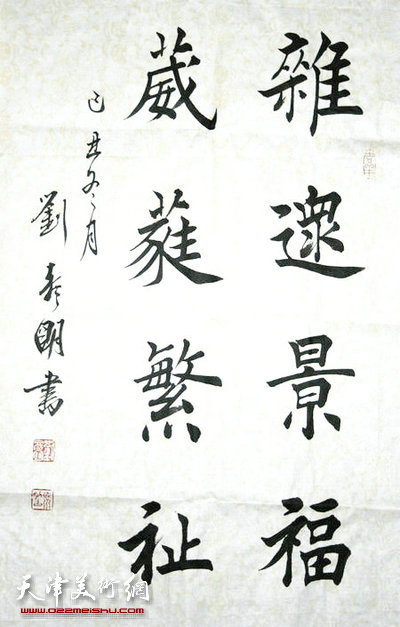 雜遝景福
葳蕤繁祉
己丑冬月
劉春明書
天津美術網
www.022meishu.com